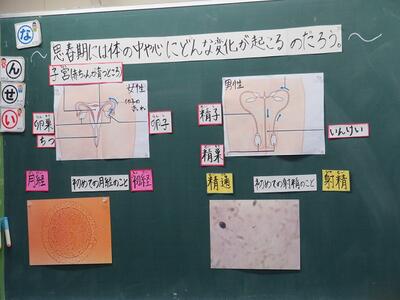 な
ん
せ
い
思春期には体の中や心にどんな変化が起こるのだろう。
子宮(赤ちゃんが育つところ)
女性
卵巣
卵子
ちつ
男性
精子
精巣
いんけい
月経
初めての月経のこと
初経
精通
初めての射精のこと
射精